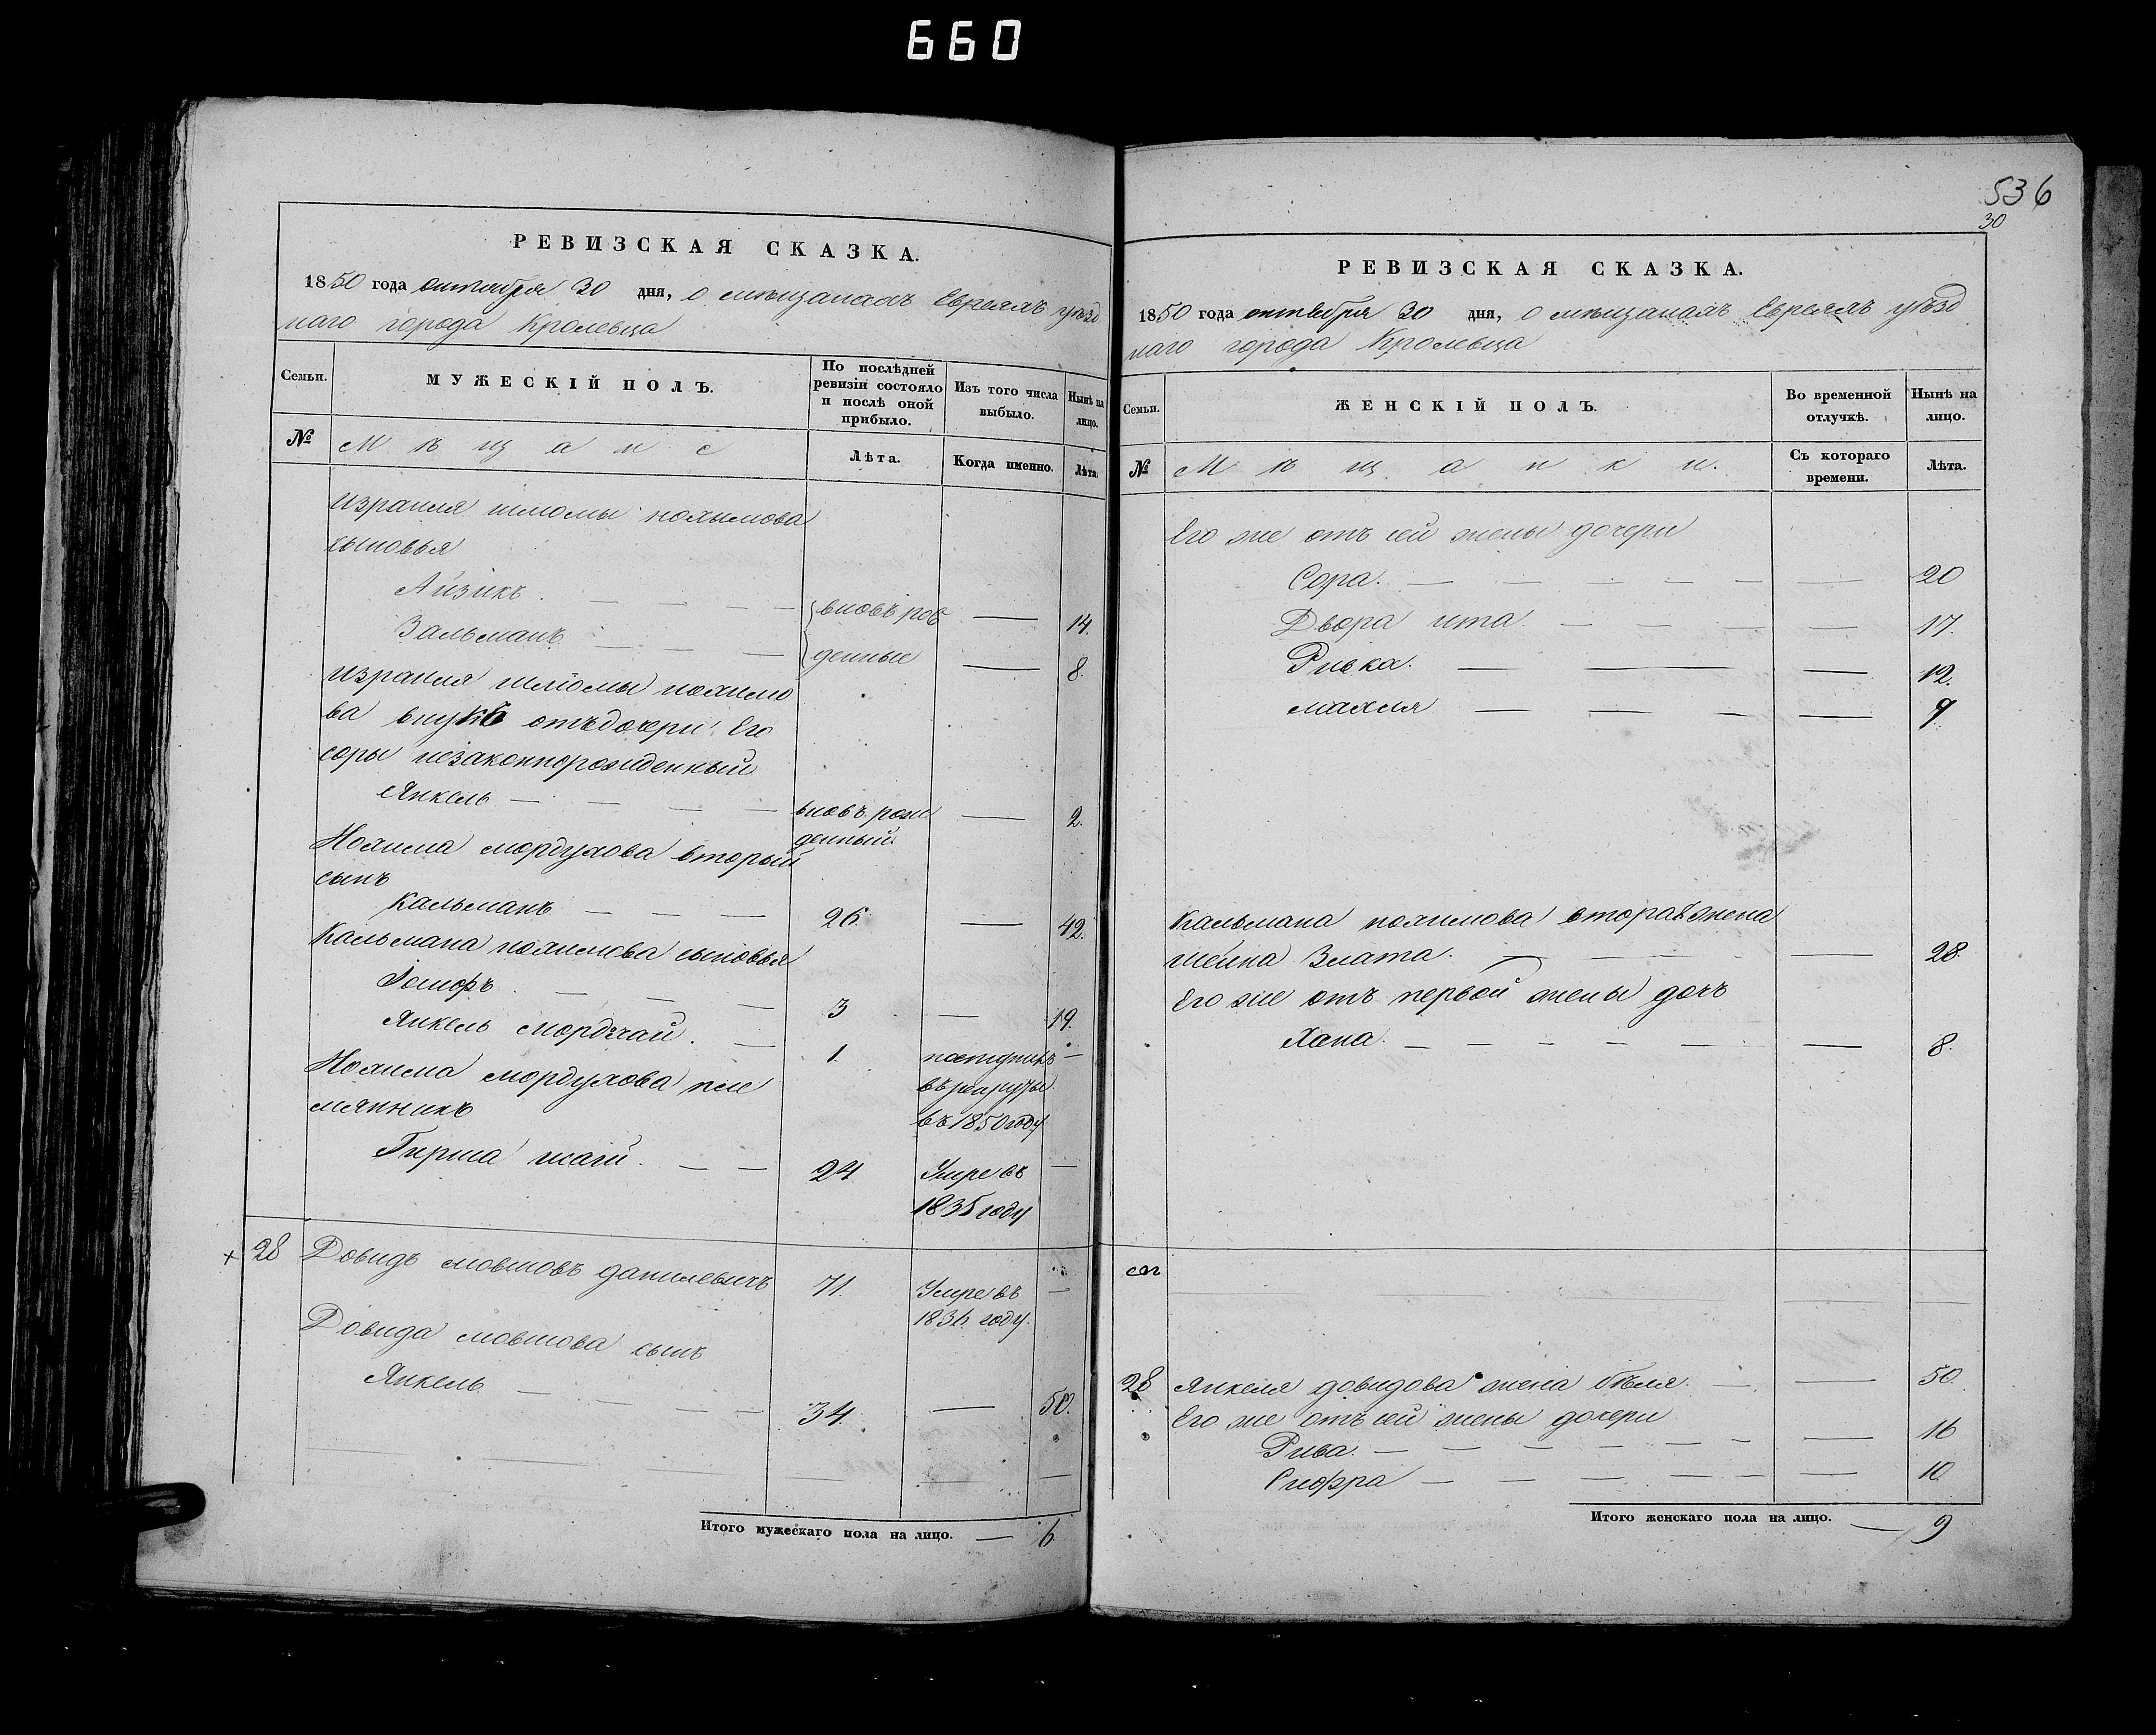 660
РЕВИЗСКАЯ СКАЗКА.
1850 года октября 30 дня, о мѣщанахъ Евреяхъ уѣзд
наго города Кролевца
Семьи.
МУЖЕСКІЙ ПОЛЪ.
По послѣдней ревизіи состояло и послѣ оной прибыло.
Изъ того числа выбыло.
Нынѣ на лицо.
№
Мѣщане
Лѣта.
Когда именно.
Лѣта.
Израиля шломы нохымова
сыновья
Айзикъ вновь рож — 14.
Зальманъ денные — 8.
Израиля шлiомы нохимо
ва внукъ отъ дочери Его
соры незаконнорожденный
Янкель — вновь рож — 2.
денный
Нохима мордухова вторый
сынъ
Кальманъ — 26. — 42.
Кальмана нохимова сыновья
Іосифъ — 3 — 19.
Янкель мордхай. — 1. поступилъ —
въ рекруты
въ 1850 году
Нохима мордухова пле
мянникъ
Гирша 24 Умре въ —
1835 году
28 Довидъ мовшовъ данилевичъ 71. Умре въ —
1836 году.
Довида мовшова сынъ
Янкель — 34. — 50.
Итого мужескаго пола на лицо. — 6
536
30
РЕВИЗСКАЯ СКАЗКА.
1850 года октября 30 дня, о мѣщанахъ Евреяхъ уѣзд
наго города Кролевца
Семьи.
ЖЕНСКІЙ ПОЛЪ.
Во временной отлучкѣ.
Нынѣ на лицо.
№
Мѣщанки.
Съ котораго времени.
Лѣта.
Его же отъ сей жены дочери
Сора. — 20
Двора ита. — 17.
Ривка. — 12.
махля — 9
Кальмана нохимова вторая жена
шейна Злата. — 28.
Его же отъ первой жены дочь
Хана. — 8.
28 Янкеля довидова жена бѣля. — 50.
Его же отъ сей жены дочери
Рива. — 16
Сифра — 10.
Итого женскаго пола на лицо. — 9